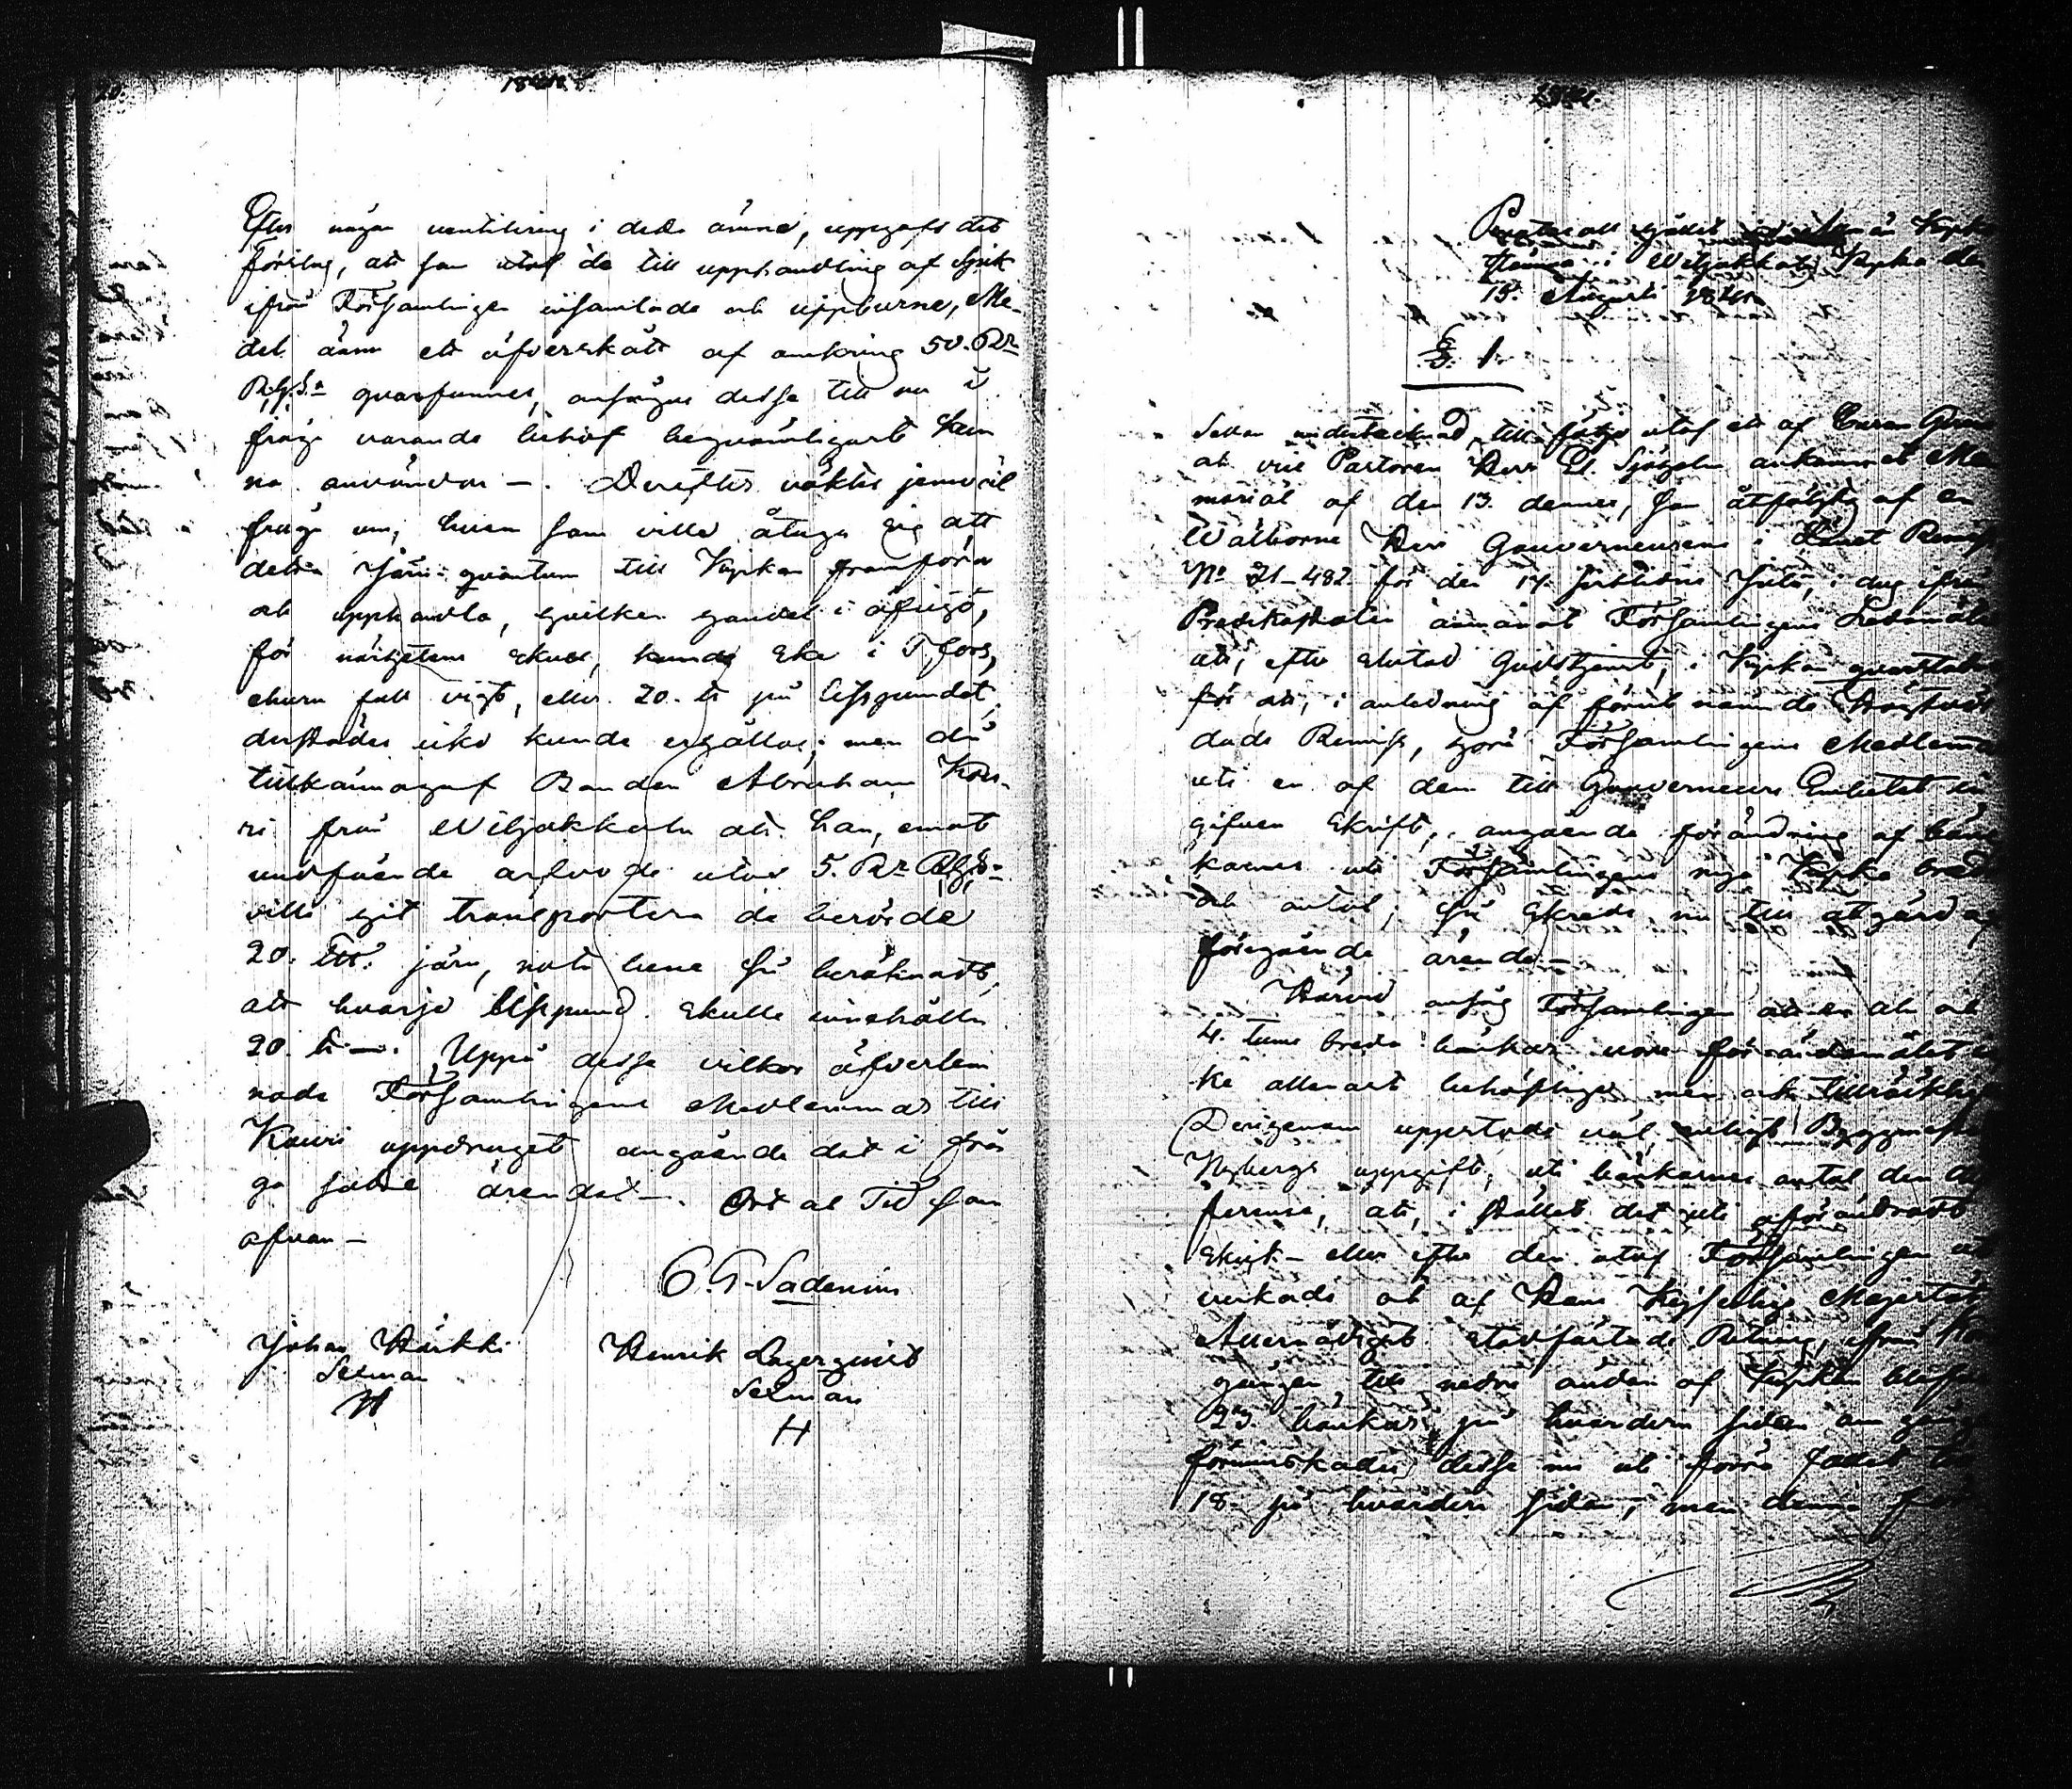 Efter någon ventilering i detta ämne, uppgafs det
förslag, att som utaf de till upphandling af Spik
ifrån Församlingen insamlade och uppburne, Me-
del ännu ett öfverskått af omkring 50. Rr
quarfunnes, ansågos desse till nu i
fråga varande behof beqvämligast kun
na användas —. Derefter väktes jemväl
fråga om, hvem som ville åtaga sig att
detta Järn-quantum till Kyrkan framföra
och upphandla, hvilken handel i öfrigt,
för närhetens skull, kunde ske i T,fors,
ehuru full vigt, eller 20. ℔ på Lisspundet
derstädes icke kunde erhållas; men då
tillkännagaf Bonden Abraham Kou-
ri från Wiljakkala att han, emot
undfående arfvode utaf 5. Rr
ville hit transportera de berörde
20. järn, nota bene så beräknadt,
att hvarje Lisspund skulle innehålla
20. ℔ —. Uppå desse vilkor öfverlem
nade Församlingens Medlemmar till
Kouri uppdraget angående det i frå
ga satte ärendet —. Ort och Tid som
ofvan —
Sadenius
Johan Härkki
Henrik Lagerqvist
Sexman
Sexman
H
H
Protocoll hållet Kyrko
Stämma i Wiljakkala Kyrka den
15. Augusti
§. 1.
Sedan undertecknad, till följe utaf ett af
och vice Pastoren Herr ankommet Me
morial af den 13. dennes, som åtföljts af en
Wälborne Herr Gouverneurens i Länet Remiss
No 21-482 för den 14. sistledne Julii, i dag ifrån
Predikostolen anmanat Församlingens Ledamöter
att, efter slutad Gudstjenst, i Kyrkan quarstadna
för att, i anledning af förut nämnde
dade Remiss, höra Församlingens Medlemmar
uti en af dem till Gouverneurs Embetet in
gifven Skrift, angående förändring af bän
karnes uti Församlingens nya Kyrka bredd
och antal; så skreds nu till åtgärd af
föregående ärende —
Härvid ansåg Församlingen
4. tums breda bänkar vore för ändamålet
ke allenast behöflige men ock tillräcklige
Derigenom uppstode väl, enligt Byggmästar
Nybergs uppgift, uti bänkarnes antal den dif
ference, att, i stället det uti oförändradt
skick — eller efter den utaf Församlingen
verkade och af Hans Kejserlige Majestät
Allernådigst stadfästade Ritning, ifrån
gången till nedre ändan af Kyrkan
23. bänkar på hvardera sidan om gång
förminskades desse nu uti förra fallet till
18. på hvardera sidan; men denna